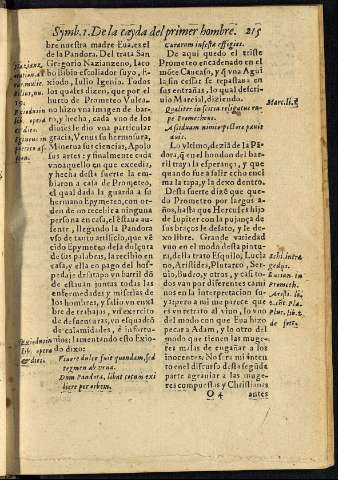 Symb. 1. De la cayda del primer hombre. 215
bre nuestra madre Eua, es el
de la Pandora. Del trata San
Gregorio Nazianzeno, Iaco
bo Bisbio escoliador suyo,
xiodo, Iulio Igenio. Todos
los quales dizen, que por el
hurto de Prometo Vulca-
no hizo vna imagen de bar-
ro, y hecha, cada vno de los
dioses le dio vna particular
gracia, Venus su hermosura,
Minerua sus ciencias, Apolo
sus artes: y finalmente cada
vno aquello en que excedia,
y hecha desta suerte la em-
biaron a casa de Prometeo,
el qual dada la guarda a su
hermano Epymeteo, con or-
den de no recebir a ninguna
persona en casa, el estaua au-
sente, llegando la Pandora
vso de tanto artificio, que vē
cido Epymeteo de la dulçura
de sus palabras, la recibio en
casa, y ella en pago del hos-
pedaje destapo vn barril dō
de estauan juntas todas las
enfermedades y miserias de
los hombres, y salio vn enxā
bre de trabajos, vn exercito
de desuenturas, vn esquadrō
de calamidades, é infortu-
nios: lamentando esto Exio-
do dixo:
Viuere dulce fuit quondam, sed
tegmen ab vrna
Dum Pandora, libat cœtum exi
liere per orbem.
Nazianz.
Exiodo in
lib. opera
& dies.
Curarum infesta effigies.
De aqui quedo el triste
Prometeo encadenado en el
mōte Caucaso, y q̄ vna Agui
la sin cessar le estaua royendo
sus entrañas, lo qual descri-
uio Marcial, diziendo.
Qualiter in scytica religatus ru-
pe Prometheus.
Assiduam nimio pectore pauit
auē.
Lo vltimo, dezia de la Pā-
dora, q̄ en el hondon del bar-
ril traia la esperança, y que
quando fue a salir echo enci
ma la tapa, y la dexo dentro.
Desta suerte dize que que-
do Prometeo por largos a-
ños, hasta que Hercules hijo
de Iupiter con la pujança de
sus braços le desato, y le de-
xo libre. Grande variedad
vuo en el modo desta pintu-
ra, della trato Esquilo, Lucia
no, Aristides, Plutarco, Ser-
uio, Budeo, y otros, y casi to-
dos van por diferentes cami
nos en la Interpretacion su-
ya: pero a mi me parece que
es vn retrato al viuo, lo vno
del modo con que Eua hizo
pecar a Adam, y lo otro del
modo que tienen las muge-
res malas de engañar a los
inocentes. No sera mi inten-
to en el discurso desta segūda
parte agrauiar a las mugeres
compuestas y Christianas
Marc. li. 
O 4
antes